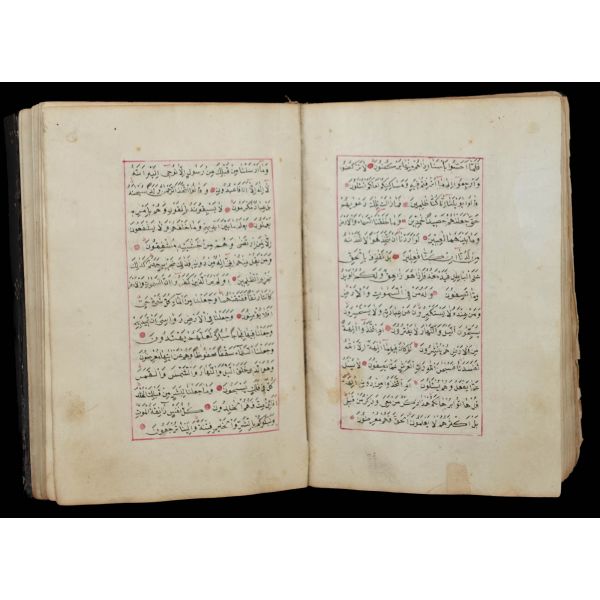 فَلَمَّا اَحَسُّوا بَأْسَنَا اِذَا هُمْ مِنْهَا يَرْكُضُونَ لَا تَرْكُضُوا
وَارْجِعُوا اِلٰى مَا اُتْرِفْتُمْ فِيهِ وَمَسَاكِنِكُمْ لَعَلَّكُمْ تُسْئَلُونَ
قَالُوا يَا وَيْلَنَا اِنَّا كُنَّا ظَالِمِينَ فَمَا زَالَتْ تِلْكَ دَعْوٰيهُمْ
حَتّٰى جَعَلْنَاهُمْ حَصِيدًا خَامِدِينَ وَمَا خَلَقْنَا السَّمَاءَ وَالْاَرْضَ
وَمَا بَيْنَهُمَا لَاعِبِينَ لَوْ اَرَدْنَا اَنْ نَتَّخِذَ لَهْوًا لَاتَّخَذْنَاهُ
مِنْ لَدُنَّا اِنْ كُنَّا فَاعِلِينَ بَلْ نَقْذِفُ بِالْحَقِّ
عَلَى الْبَاطِلِ فَيَدْمَغُهُ فَاِذَا هُوَ زَاهِقٌ وَلَكُمُ الْوَيْلُ
مِمَّا تَصِفُونَ وَلَهُ مَنْ فِي السَّمٰوَاتِ وَالْاَرْضِ
وَمَنْ عِنْدَهُ لَا يَسْتَكْبِرُونَ عَنْ عِبَادَتِهِ وَلَا يَسْتَحْسِرُونَ
يُسَبِّحُونَ الَّيْلَ وَالنَّهَارَ لَا يَفْتُرُونَ اَمِ اتَّخَذُوا اٰلِهَةً
مِنَ الْاَرْضِ هُمْ يُنْشِرُونَ لَوْ كَانَ فِيهِمَا اٰلِهَةٌ اِلَّا اللّٰهُ
لَفَسَدَتَا فَسُبْحَانَ اللّٰهِ رَبِّ الْعَرْشِ عَمَّا يَصِفُونَ لَا يُسْئَلُ
عَمَّا يَفْعَلُ وَهُمْ يُسْئَلُونَ اَمِ اتَّخَذُوا مِنْ دُونِهِ اٰلِهَةً
قُلْ هَاتُوا بُرْهَانَكُمْ هٰذَا ذِكْرُ مَنْ مَعِيَ وَذِكْرُ مَنْ قَبْلِي
بَلْ اَكْثَرُهُمْ لَا يَعْلَمُونَ الْحَقَّ فَهُمْ مُعْرِضُونَ
وَمَا اَرْسَلْنَا مِنْ قَبْلِكَ مِنْ رَسُولٍ اِلَّا نُوحِي اِلَيْهِ اَنَّهُ
لَا اِلٰهَ اِلَّا اَنَا فَاعْبُدُونِ وَقَالُوا اتَّخَذَ الرَّحْمٰنُ وَلَدًا سُبْحَانَهُ
بَلْ عِبَادٌ مُكْرَمُونَ لَا يَسْبِقُونَهُ بِالْقَوْلِ وَهُمْ بِاَمْرِهِ
يَعْمَلُونَ يَعْلَمُ مَا بَيْنَ اَيْدِيهِمْ وَمَا خَلْفَهُمْ وَلَا يَشْفَعُونَ
اِلَّا لِمَنِ ارْتَضٰى وَهُمْ مِنْ خَشْيَتِهِ مُشْفِقُونَ
وَمَنْ يَقُلْ مِنْهُمْ اِنِّي اِلٰهٌ مِنْ دُونِهِ فَذٰلِكَ نَجْزِيهِ جَهَنَّمَ كَذٰلِكَ
نَجْزِي الظَّالِمِينَ اَوَلَمْ يَرَ الَّذِينَ كَفَرُوا اَنَّ السَّمٰوَاتِ وَالْاَرْضَ
كَانَتَا رَتْقًا فَفَتَقْنَاهُمَا وَجَعَلْنَا مِنَ الْمَاءِ كُلَّ شَيْءٍ حَيٍّ
اَفَلَا يُؤْمِنُونَ وَجَعَلْنَا فِي الْاَرْضِ رَوَاسِيَ اَنْ تَمِيدَ بِهِمْ
وَجَعَلْنَا فِيهَا فِجَاجًا سُبُلًا لَعَلَّهُمْ يَهْتَدُونَ
وَجَعَلْنَا السَّمَاءَ سَقْفًا مَحْفُوظًا وَهُمْ عَنْ اٰيَاتِهَا مُعْرِضُونَ
وَهُوَ الَّذِي خَلَقَ الَّيْلَ وَالنَّهَارَ وَالشَّمْسَ وَالْقَمَرَ
كُلٌّ فِي فَلَكٍ يَسْبَحُونَ وَمَا جَعَلْنَا لِبَشَرٍ مِنْ قَبْلِكَ الْخُلْدَ
اَفَائِنْ مِتَّ فَهُمُ الْخَالِدُونَ كُلُّ نَفْسٍ ذَائِقَةُ الْمَوْتِ
وَنَبْلُوكُمْ بِالشَّرِّ وَالْخَيْرِ فِتْنَةً وَاِلَيْنَا تُرْجَعُونَ